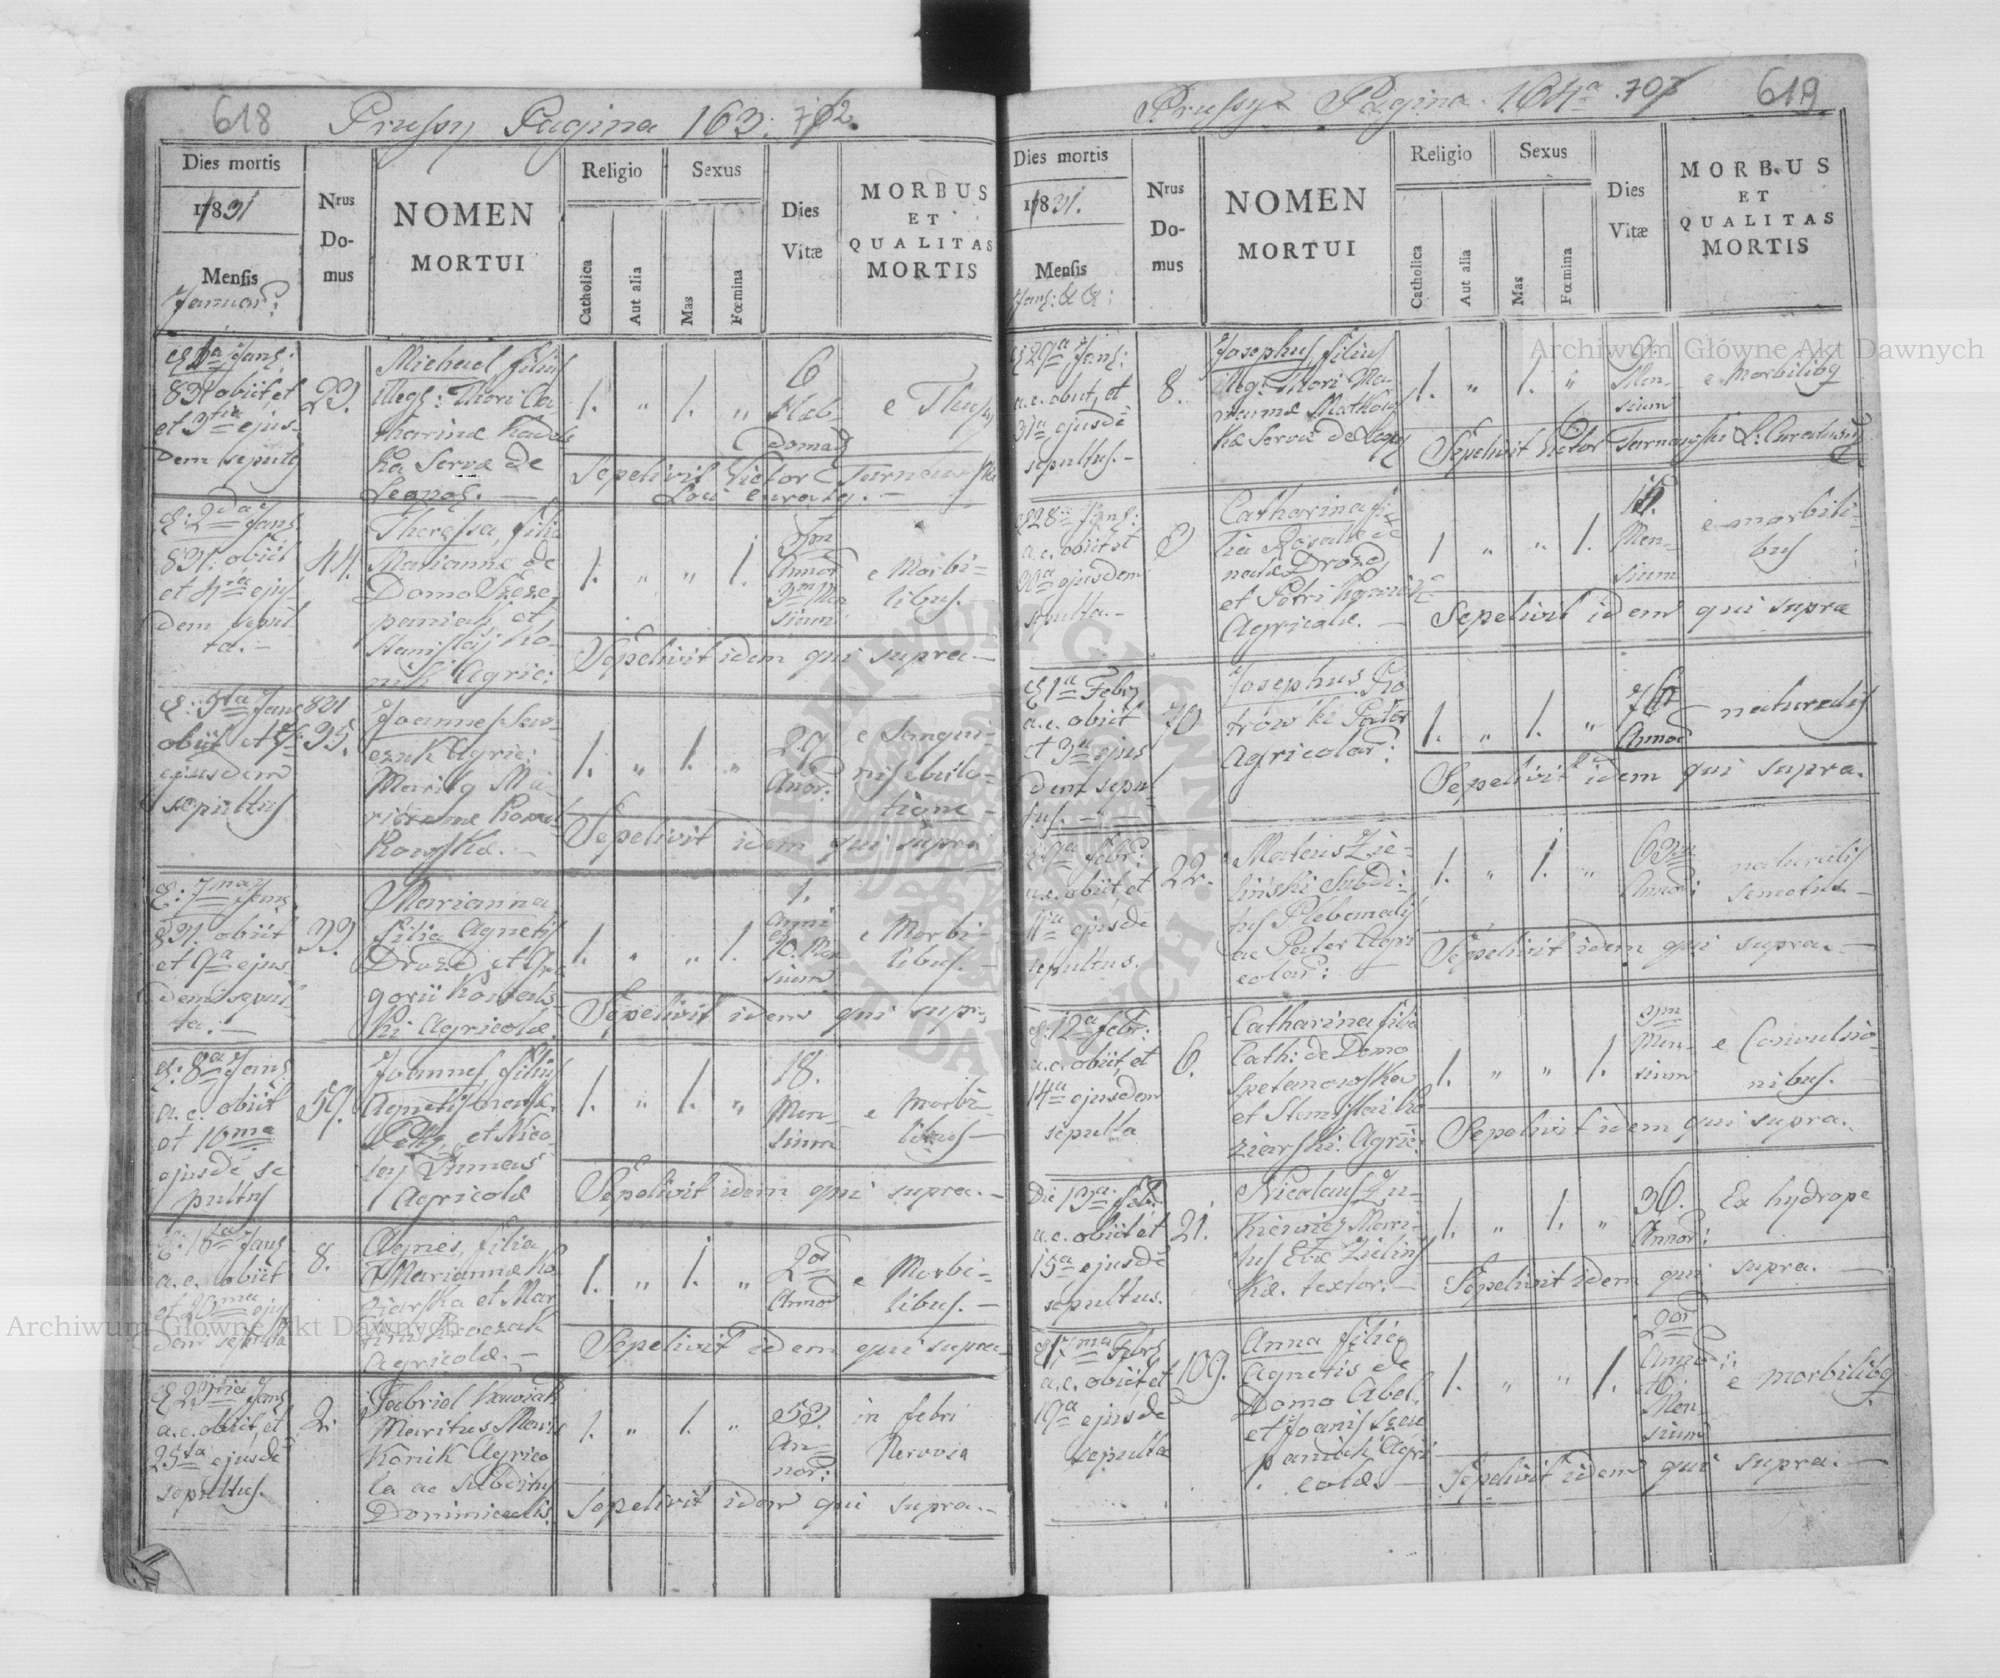 618
Prussy Pagina 163. 702.
Dies mortis
1831
Mensis
Januar:
Nrus
Do-
mus
NOMEN
MORTUI
Religio
Catholica
Aut alia
Sexus
Mas
Fœmina
Dies
Vitæ
MORBUS
ET
QUALITAS
MORTIS
Jans:
831 obiit et
et 3tia ejus-
dem sepult9
23.
Michael filius
illegs: Thori Ca-
tharinæ
ka Servæ de
1. " 1. "
6
Heb-
domad
e Thussy
Sepelivit Victor Turnowski
Loci curatq. -
E: 2da Jans
831. obiit
et 4ta ejus
dem sepul-
ta. -
44.
Theressa, filia
Mariannæ de
Domo Szcze
paniak et
Stanislaj Ko-
nik Agric:
1. " " 1.
Annor
3m Men
sium
e Morbi=
libus. -
Sepelivit idem qui supra -
E: 5ta Jans 831
obiit et 7a
ejusdem
sepultus
35.
Joannes Saw-
czuk Agric:
Maritq Ma-
riannæ Kowal
kowskæ. -
1. " 1. "
29
Anor:
e Sangui-
nis ebuli-
tione -
Sepelivit idem qui supra
E: 7ma Jans
831. obiit
et 9a ejus
dem sepul
ta: -
33.
Marianna
Filia Agnetis
Drozd et Gre
gorii Kowals-
ki Agricolæ
1. " " 1.
1.
Anni
et
10. Men
sium
e Morbi-
libus. -
Sepelivit idem qui supra
E: 8a Jans
a. c. obiit
et 10ma
ejusdē se
pultus
59.
Joannes filius
Agnetis
et Nico
laj
Agricolæ
1. " 1. "
18.
Men-
sium
e Morbi-
libus -
Sepelivit idem qui supra. -
E: 18a Jans
a. c. obiit
et 20ma ejus
dem sepulta
8.
Agnes, filia
Mariannæ Ko
ziarska et Mar
tini Kroczak
Agricolæ. -
1. " 1. "
2or
Annor
e Morbi-
libus. -
Sepelivit idem qui supra -
E 23tia Jans
a. c. obiit, et
25ta ejusdē
sepultus.
2.
Gabriel
Maritus Mariæ
Konik Agrico
la ac Subditus
Dominicalis.
1. " 1. "
53.
An-
nor:
in febri
Nervosa
Sepelivit idem qui supra. -
619
Prussy Pagina. 164a. 703
Dies mortis
1831.
Mensis
Jans: & &:
Nrus
Do-
mus
NOMEN
MORTUI
Religio
Catholica
Aut alia
Sexus
Mas
Fœmina
Dies
Vitæ
MORBUS
ET
QUALITAS
MORTIS
E 29a Jans:
a. c. obiit, et
31a ejusdē
sepultus. -
8.
Josephus, filius
illeg: Thori Ma-
riannæ Matkow
kæ Servæ de
1. " 1. "
6.
Men-
sium
e Morbilibq
Sepelivit Victor Turnowski L: Curatus
E 28a Jans:
a. c. obiit et
30a ejusdem
sepulta. -
Catharina fi-
lia Rosaliæ de
natæ Drozd,
et Petri
Agricolæ. -
1 " " 1.
Men-
sium
e morbili-
bus
Sepelivit idem qui supra
E 1a Febr
a. c. obiit
et 3a ejus
dem sepul
tus. - -
70
Josephus Pio
trowski Pater
Agricolar:
1. " 1. "
76
Annor
naturalis
Sepelivit idem qui supra.
E 9a febr:
a. c. obiit, et
11a ejusdē
sepultus.
22.
Mateus Zie-
linski Subdi-
tus Plebanalis
ac Pater Agri
colar:
1. " 1. "
63
Annor:
naturalis
senectus. -
Sepelivit idem qui supra. -
E. 12a febr:
a. c. obiit, et
14a ejusdem
sepulta
6.
Catharina filia
Cath: de Domo
Szetanowska
et Stanislai Ko
ziarski. Agric:
1. " " 1.
3m
Men-
sium
e Convulsio-
nibus. -
Sepelivit idem qui supra.
Die 13a. feb.
a. c. obiit et
15a ejusdē
sepultus.
21.
Nicolaus Zu-
kiewicz Mari-
tus Evæ Zielins
kæ. textor. -
1. " 1. "
36.
Annor:
Ex hydrope
Sepelivit idem qui supra. -
E 17ma Febr
a. c. obiit et
19a ejusdē
sepulta
109.
Anna filia
Agnetis de
Domo Abel
et Joanis Szcze
paniak Agri
colæ -
1. " " 1.
2or
Annor:
et 6
Men
sium
e morbilibq
Sepelivit idem qui supra. -
Archiwum Główne Akt Dawnych
Archiwum Główne Akt Dawnych
ARCHIWUM GŁÓWNE AKT DAWNYCH